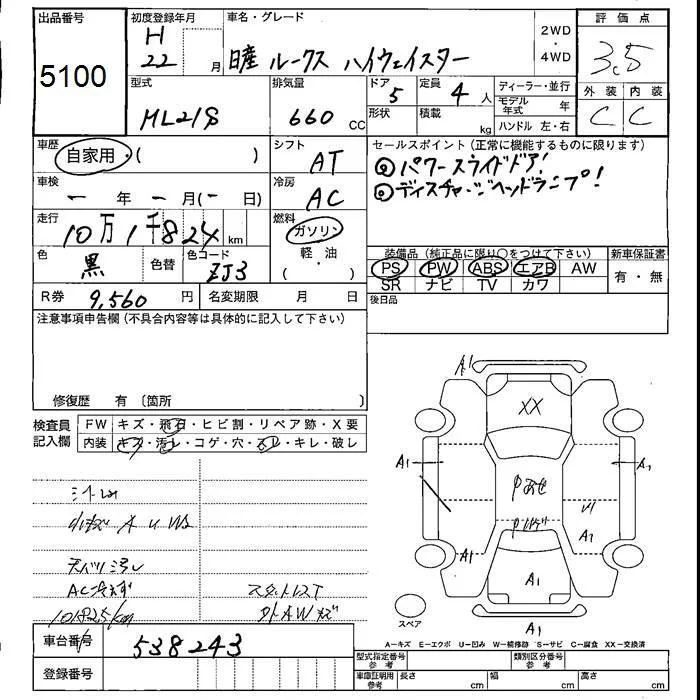 出品番号
5100
初度登録年月
H
22 月
車名・グレード
日産 ルークス ハイウェイスター
2WD
・
4WD
評価点
3.5
外装 内装
C C
型式
ML21S
排気量
660 CC
ドア
5
形状
定員
4 人
積載
kg
ディーラー・並行
モデル年式 年
ハンドル 左・右
車歴
自家用・( )
シフト
AT
車検
- 年 - 月(- 日)
冷房
AC
走行
10万1千824 km
燃料
ガソリン
軽・油
( )
色
黒
色替
色コード
ZJ3
R券 9,560 円
名変期限 月 日
セールスポイント(正常に機能するものに限ります)
◎パワースライドドア!
◎ディスチャージヘッドランプ!
装備品(純正品に限り○をつけて下さい)
PS PW ABS エアB AW
SR ナビ TV カワ
新車保証書
有・無
後日品
注意事項申告欄(不具合内容等は具体的に記入して下さい)
修復歴 有〔箇所 〕
検査員
記入欄
FW キズ・飛石・ヒビ割・リペア跡・X要
内装 キズ・汚レ・コゲ・穴・スレ・キレ・破レ
天バリ汚レ
スタットレスT
A1
XX
A1
A1
A1
A1
A1
A1
スペア
A1
A-キズ E-エクボ U-凹み W-補修跡 S-サビ C-腐食 XX-交換済
車台番号 538243
登録番号
型式指定番号
参考
類別区分番号
参考
車庫証明用
参考
長さ cm
幅 cm
高さ cm